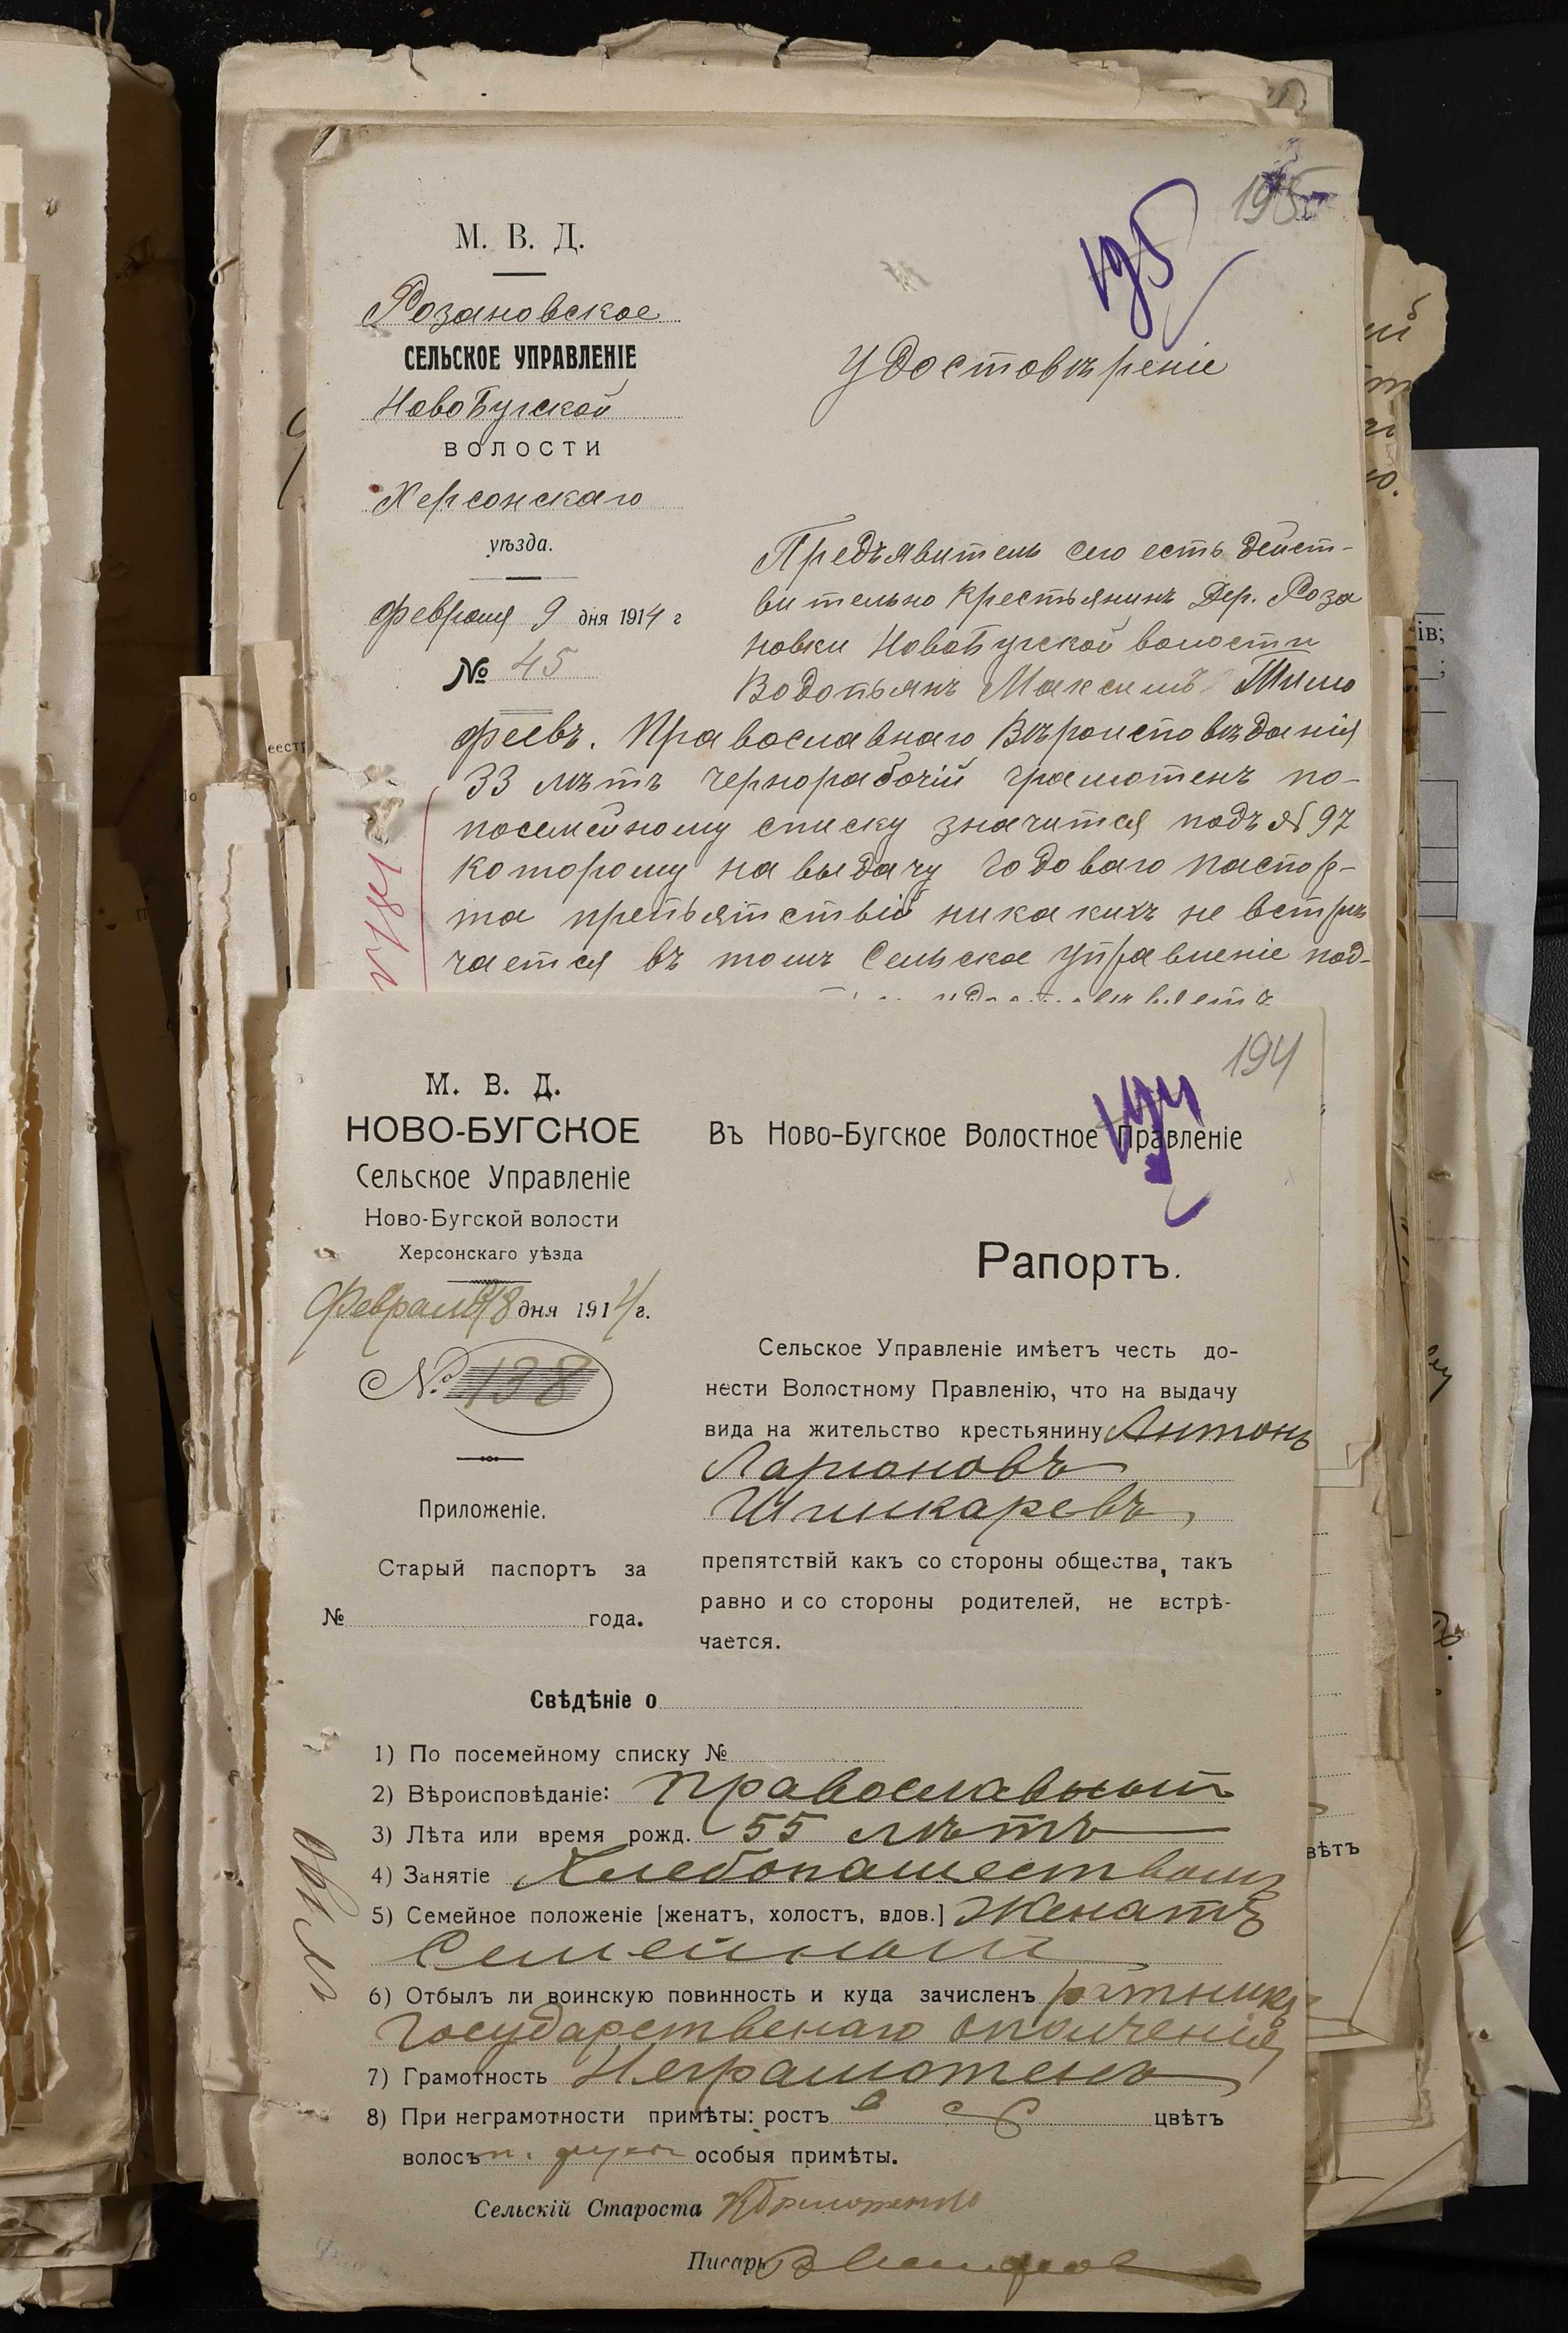 195
195
М. В. Д.
Розановское
СЕЛЬСКОЕ УПРАВЛЕНІЕ
НовоБугской
ВОЛОСТИ
Херсонскаго
уѣзда.
Февраля 9 дня 1914 г
№ 45
Удостовѣреніе
Предъявитель сего есть дейст-
вительно крестьянинъ дер. Роза
новки НовоБугской волости
Водопьянъ Максимъ Тимо
феевъ. Православнаго Вѣроисповѣданія
33 лѣтъ чернорабочій грамотенъ по-
посемейному списку значится подъ № 97
которому на выдачу годоваго паспор-
та препьятствій никакихъ не встрѣ
чается въ томъ Сельское Управленіе под-
194
М. В. Д.
НОВО-БУГСКОЕ
Сельское Управленіе
Ново-Бугской волости
Херсонскаго уѣзда
Февраля 18 дня 1914 г.
№ 138
Приложеніе.
Старый паспортъ за
№ года.
194
Въ Ново-Бугское Волостное Правленіе
Рапортъ.
Сельское Управленіе имѣетъ честь до-
нести Волостному Правленію, что на выдачу
вида на жительство крестьянину Антонъ
Ларіоновъ
Шишкаревъ,
препятствій какъ со стороны общества, такъ
равно и со стороны родителей, не встрѣ-
чается.
Свѣдѣніе о
1) По посемейному списку №
2) Вѣроисповѣданіе: православный
3) Лѣта или время рожд. 55 лѣтъ
4) Занятіе Хлебопашествомъ
5) Семейное положеніе [женатъ, холостъ, вдов.] Женатъ
Семейный
6) Отбылъ ли воинскую повинность и куда зачисленъ ратникъ
Государственаго ополченія
7) Грамотность Неграмотенъ
8) При неграмотности примѣты: ростъ цвѣтъ
волосъ особыя примѣты.
Сельскій Староста
Писарь